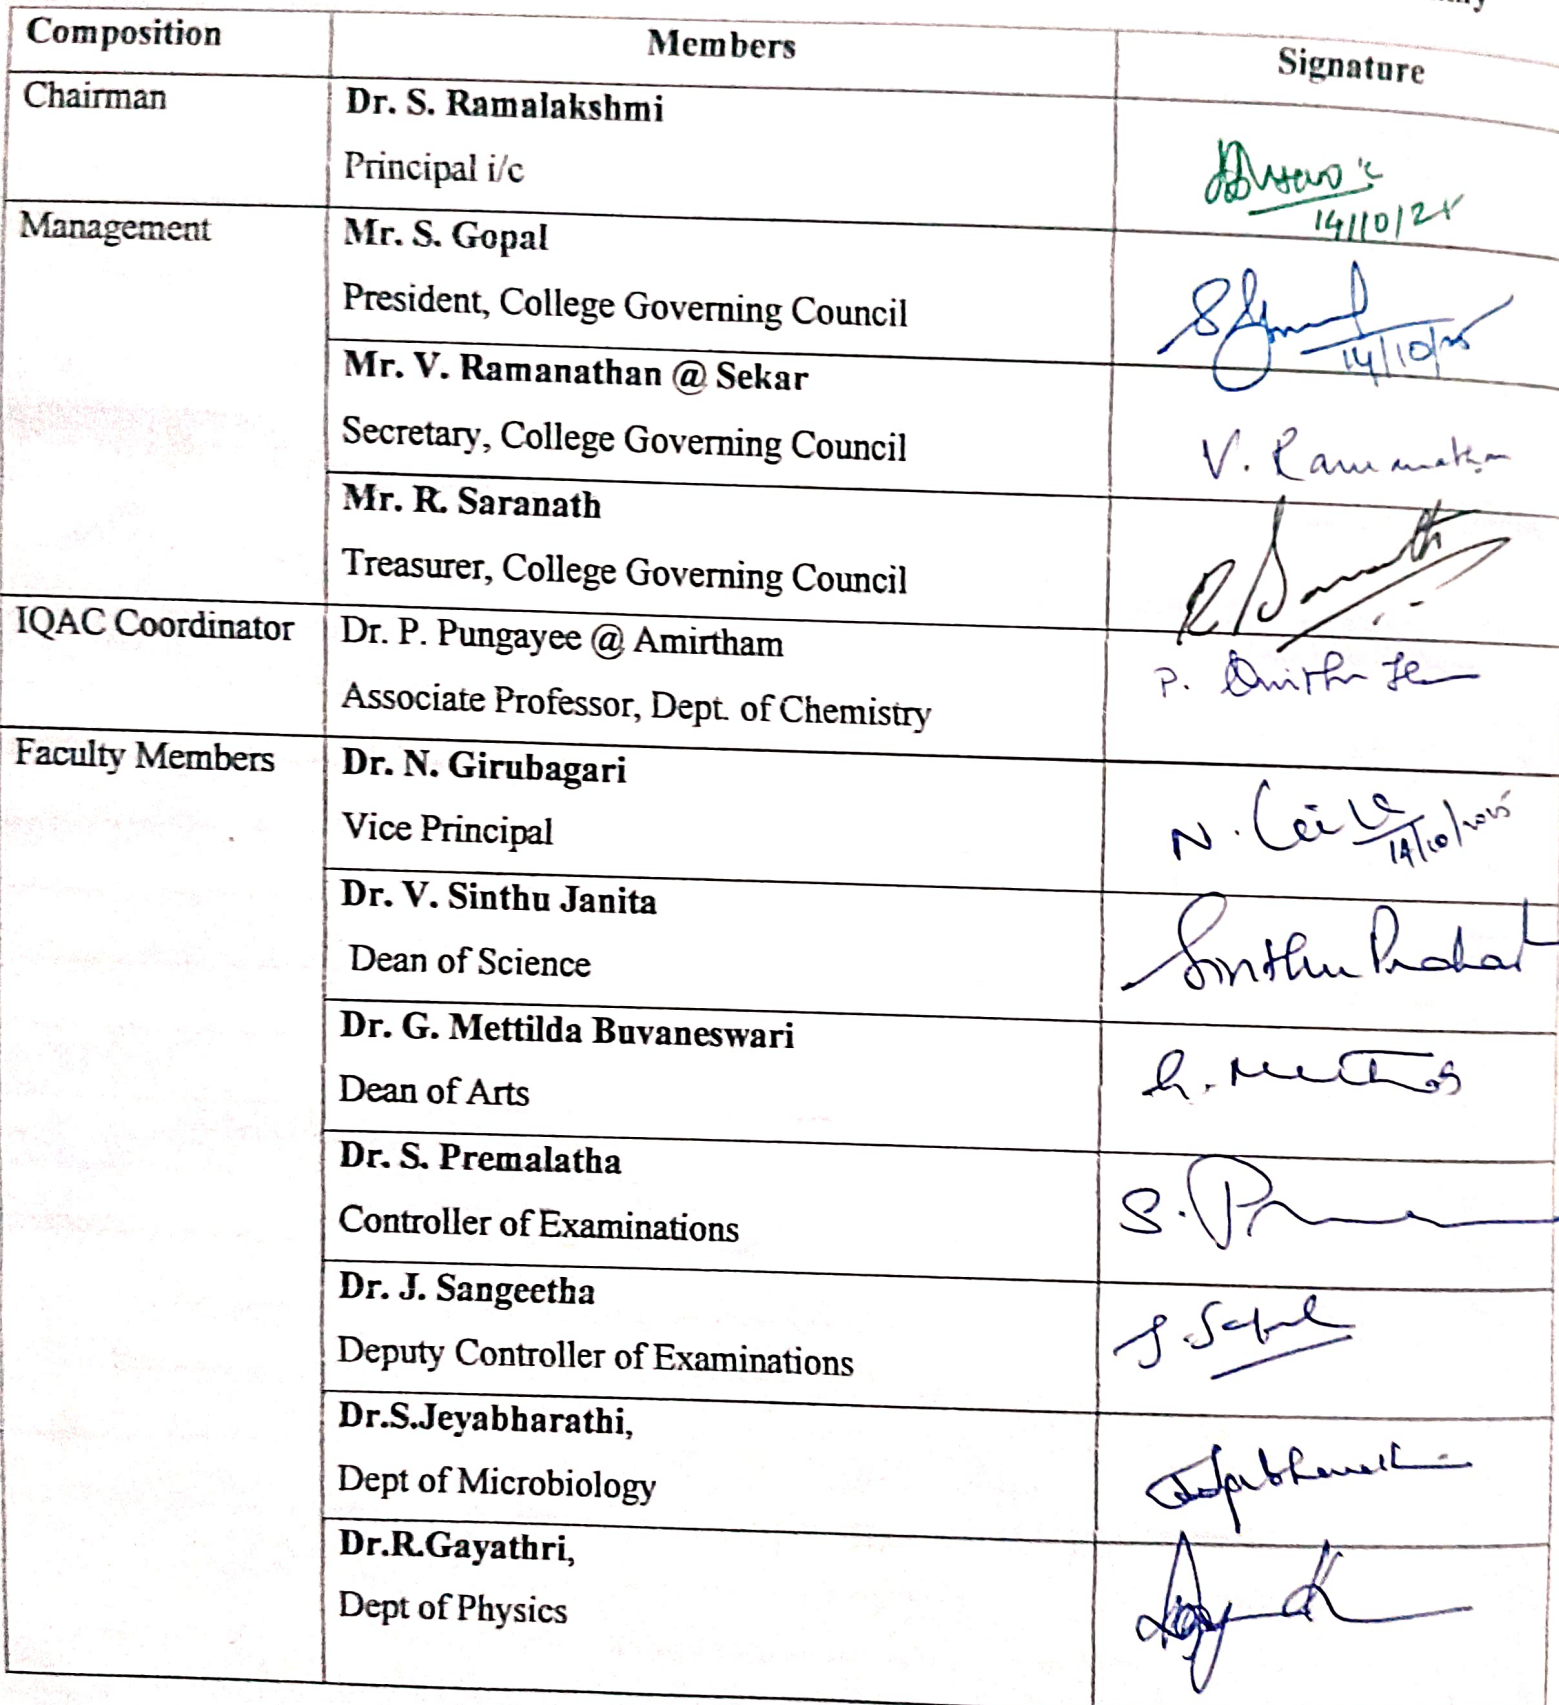 Composition Members Signature
Chairman Dr. S. Ramalakshmi
Principal i/c
14/10/25
Management Mr. S. Gopal
President, College Governing Council
14/10/25
Mr. V. Ramanathan @ Sekar
Secretary, College Governing Council V. Ramanathan
Mr. R. Saranath
Treasurer, College Governing Council R Saranath
IQAC Coordinator Dr. P. Pungayee @ Amirtham
Associate Professor, Dept. of Chemistry
Faculty Members Dr. N. Girubagari
Vice Principal N.
14/10/2025
Dr. V. Sinthu Janita
Dean of Science Sinthu
Dr. G. Mettilda Buvaneswari
Dean of Arts
Dr. S. Premalatha
Controller of Examinations S.
Dr. J. Sangeetha
Deputy Controller of Examinations J.
Dr.S.Jeyabharathi,
Dept of Microbiology
Dr.R.Gayathri,
Dept of Physics